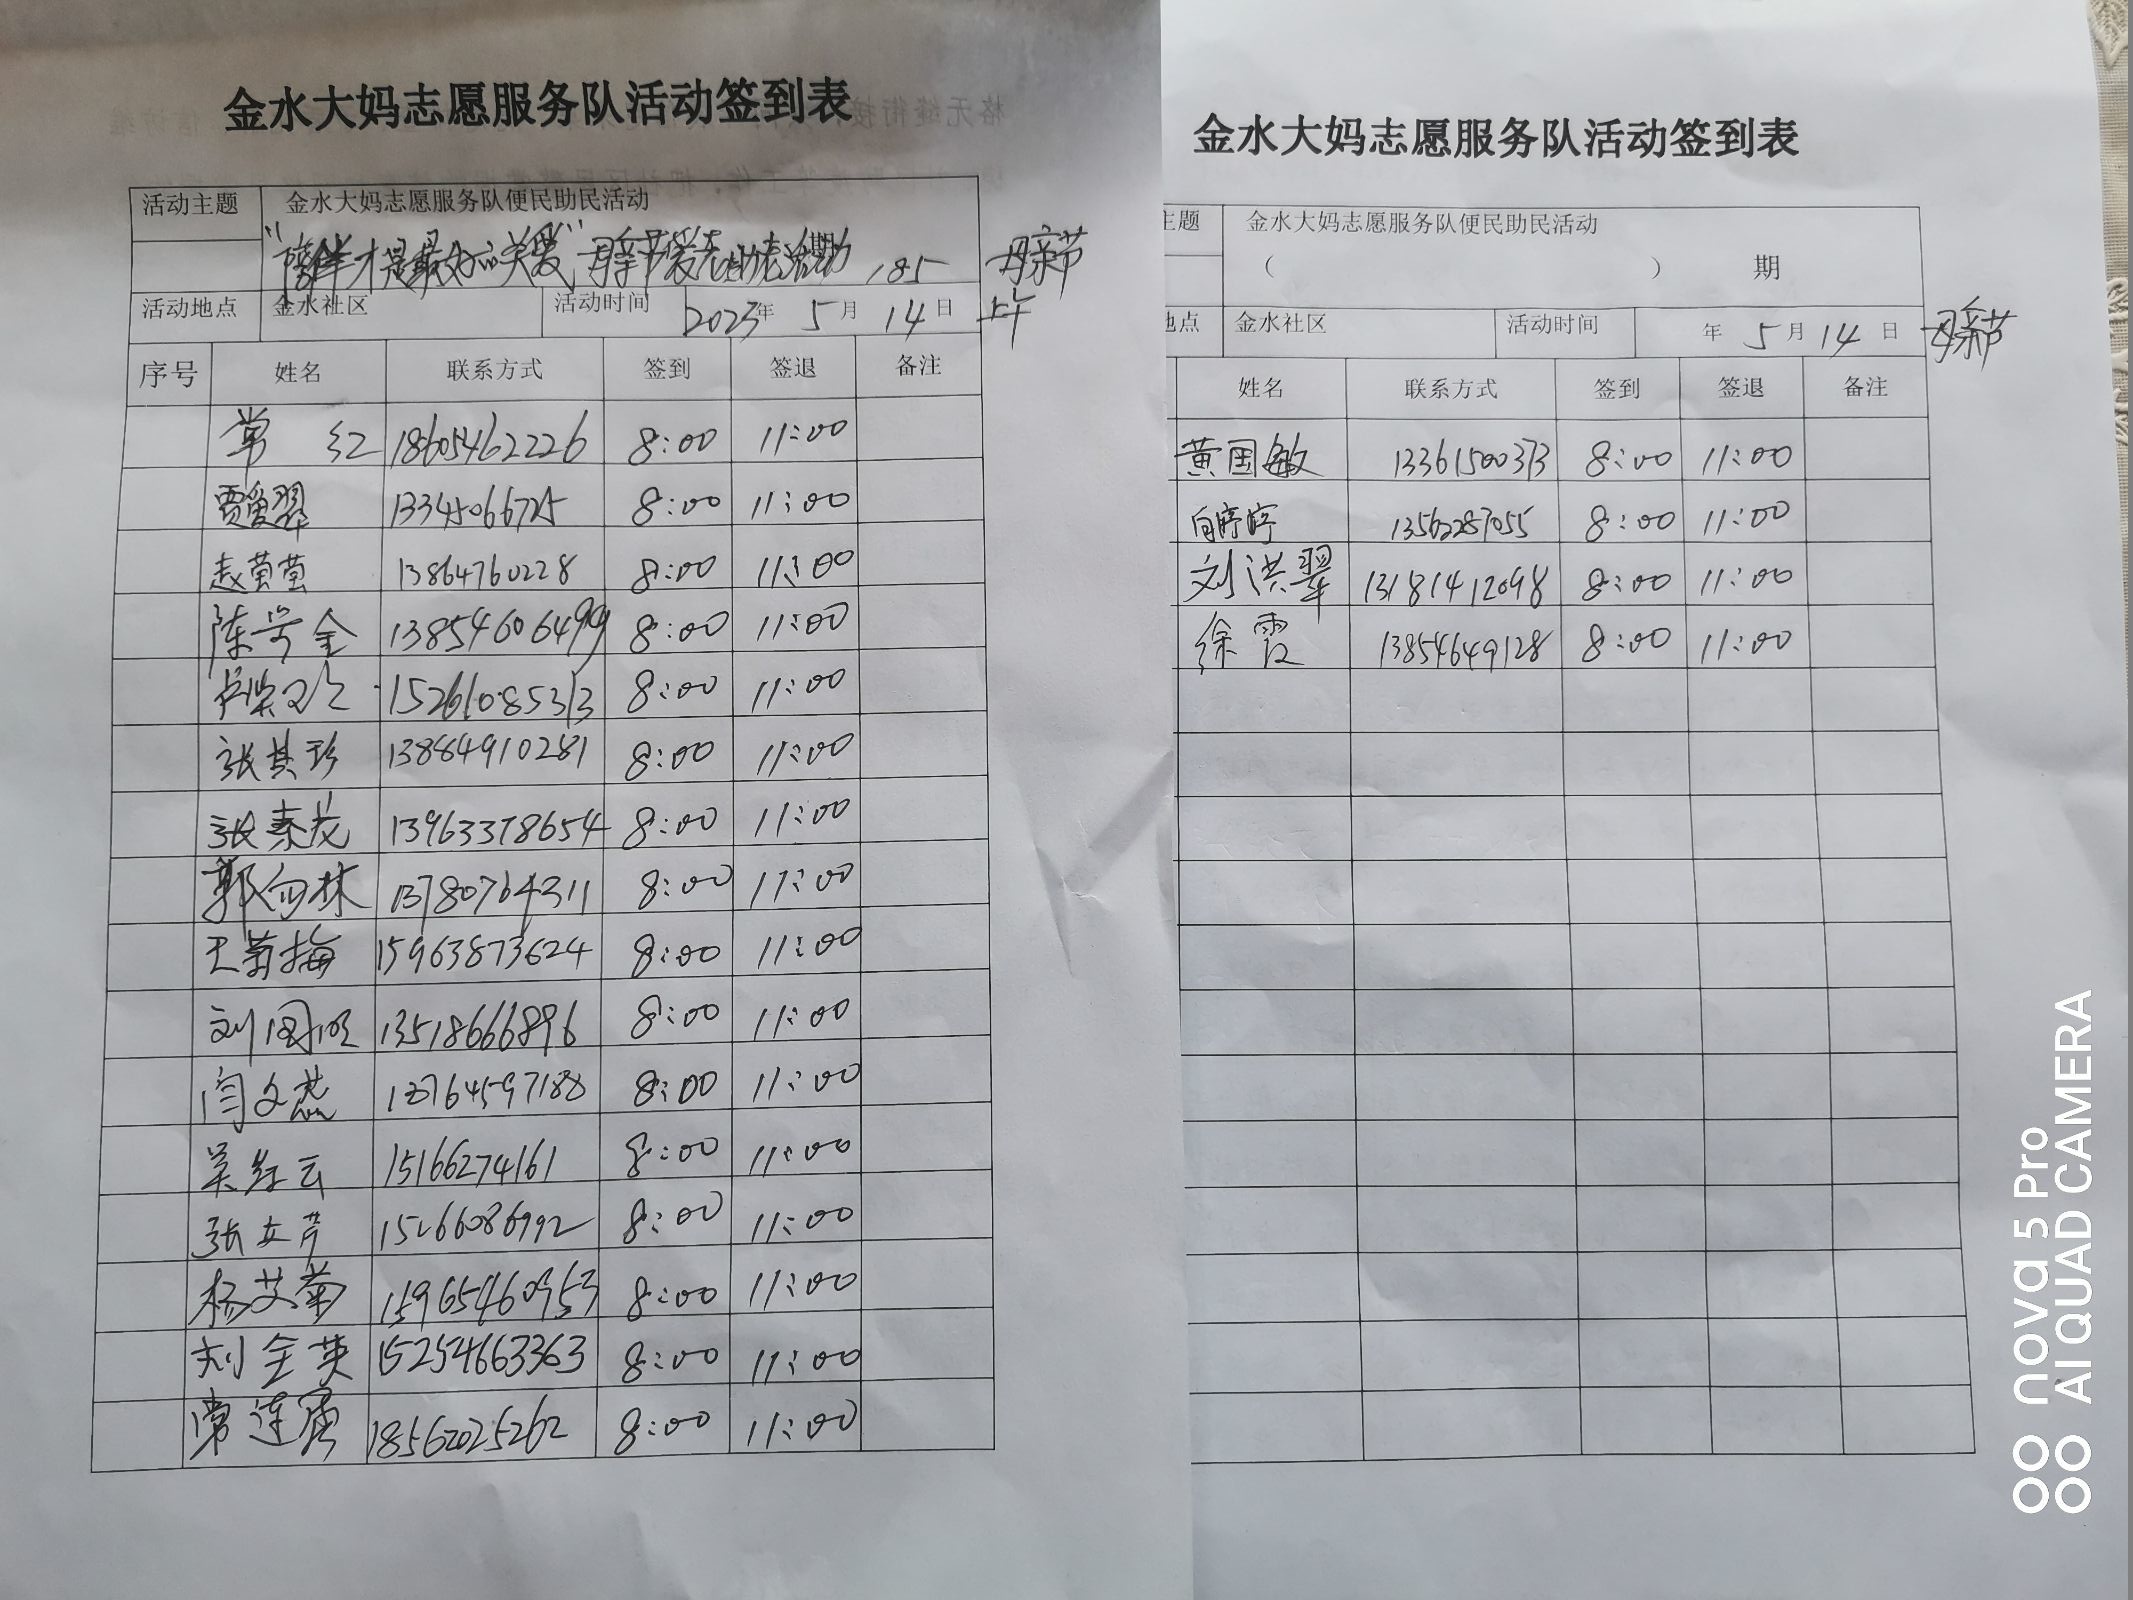 金水大妈志愿服务队活动签到表
活动主题 金水大妈志愿服务队便民助民活动
"陪伴才是最好的关爱"母亲节爱老助老活动 期 185 母亲节
活动地点 金水社区 活动时间 2023年 5月 14日 上午
序号 姓名 联系方式 签到 签退 备注
常红 18605462226 8:00 11:00
贾爱翠 13345066725 8:00 11:00
赵莹莹 13864760228 8:00 11:00
陈 金 13854606499 8:00 11:00
15261085313 8:00 11:00
张其珍 13864910281 8:00 11:00
张素花 13963378654 8:00 11:00
郭向林 13780764311 8:00 11:00
王菊梅 15963873624 8:00 11:00
刘国 13518666896 8:00 11:00
闫文燕 13764597188 8:00 11:00
吴红云 15166274161 8:00 11:00
张立芹 15266086992 8:00 11:00
杨艾菊 15965460953 8:00 11:00
刘全英 15254663363 8:00 11:00
常连 18562025262 8:00 11:00
金水大妈志愿服务队活动签到表
主题 金水大妈志愿服务队便民助民活动
（ ） 期
地点 金水社区 活动时间 年 5月 14日 母亲节
姓名 联系方式 签到 签退 备注
黄国敏 13361500373 8:00 11:00
白婷婷 13562287055 8:00 11:00
刘洪翠 13181412098 8:00 11:00
徐霞 13854649128 8:00 11:00
nova 5 Pro
AI QUAD CAMERA